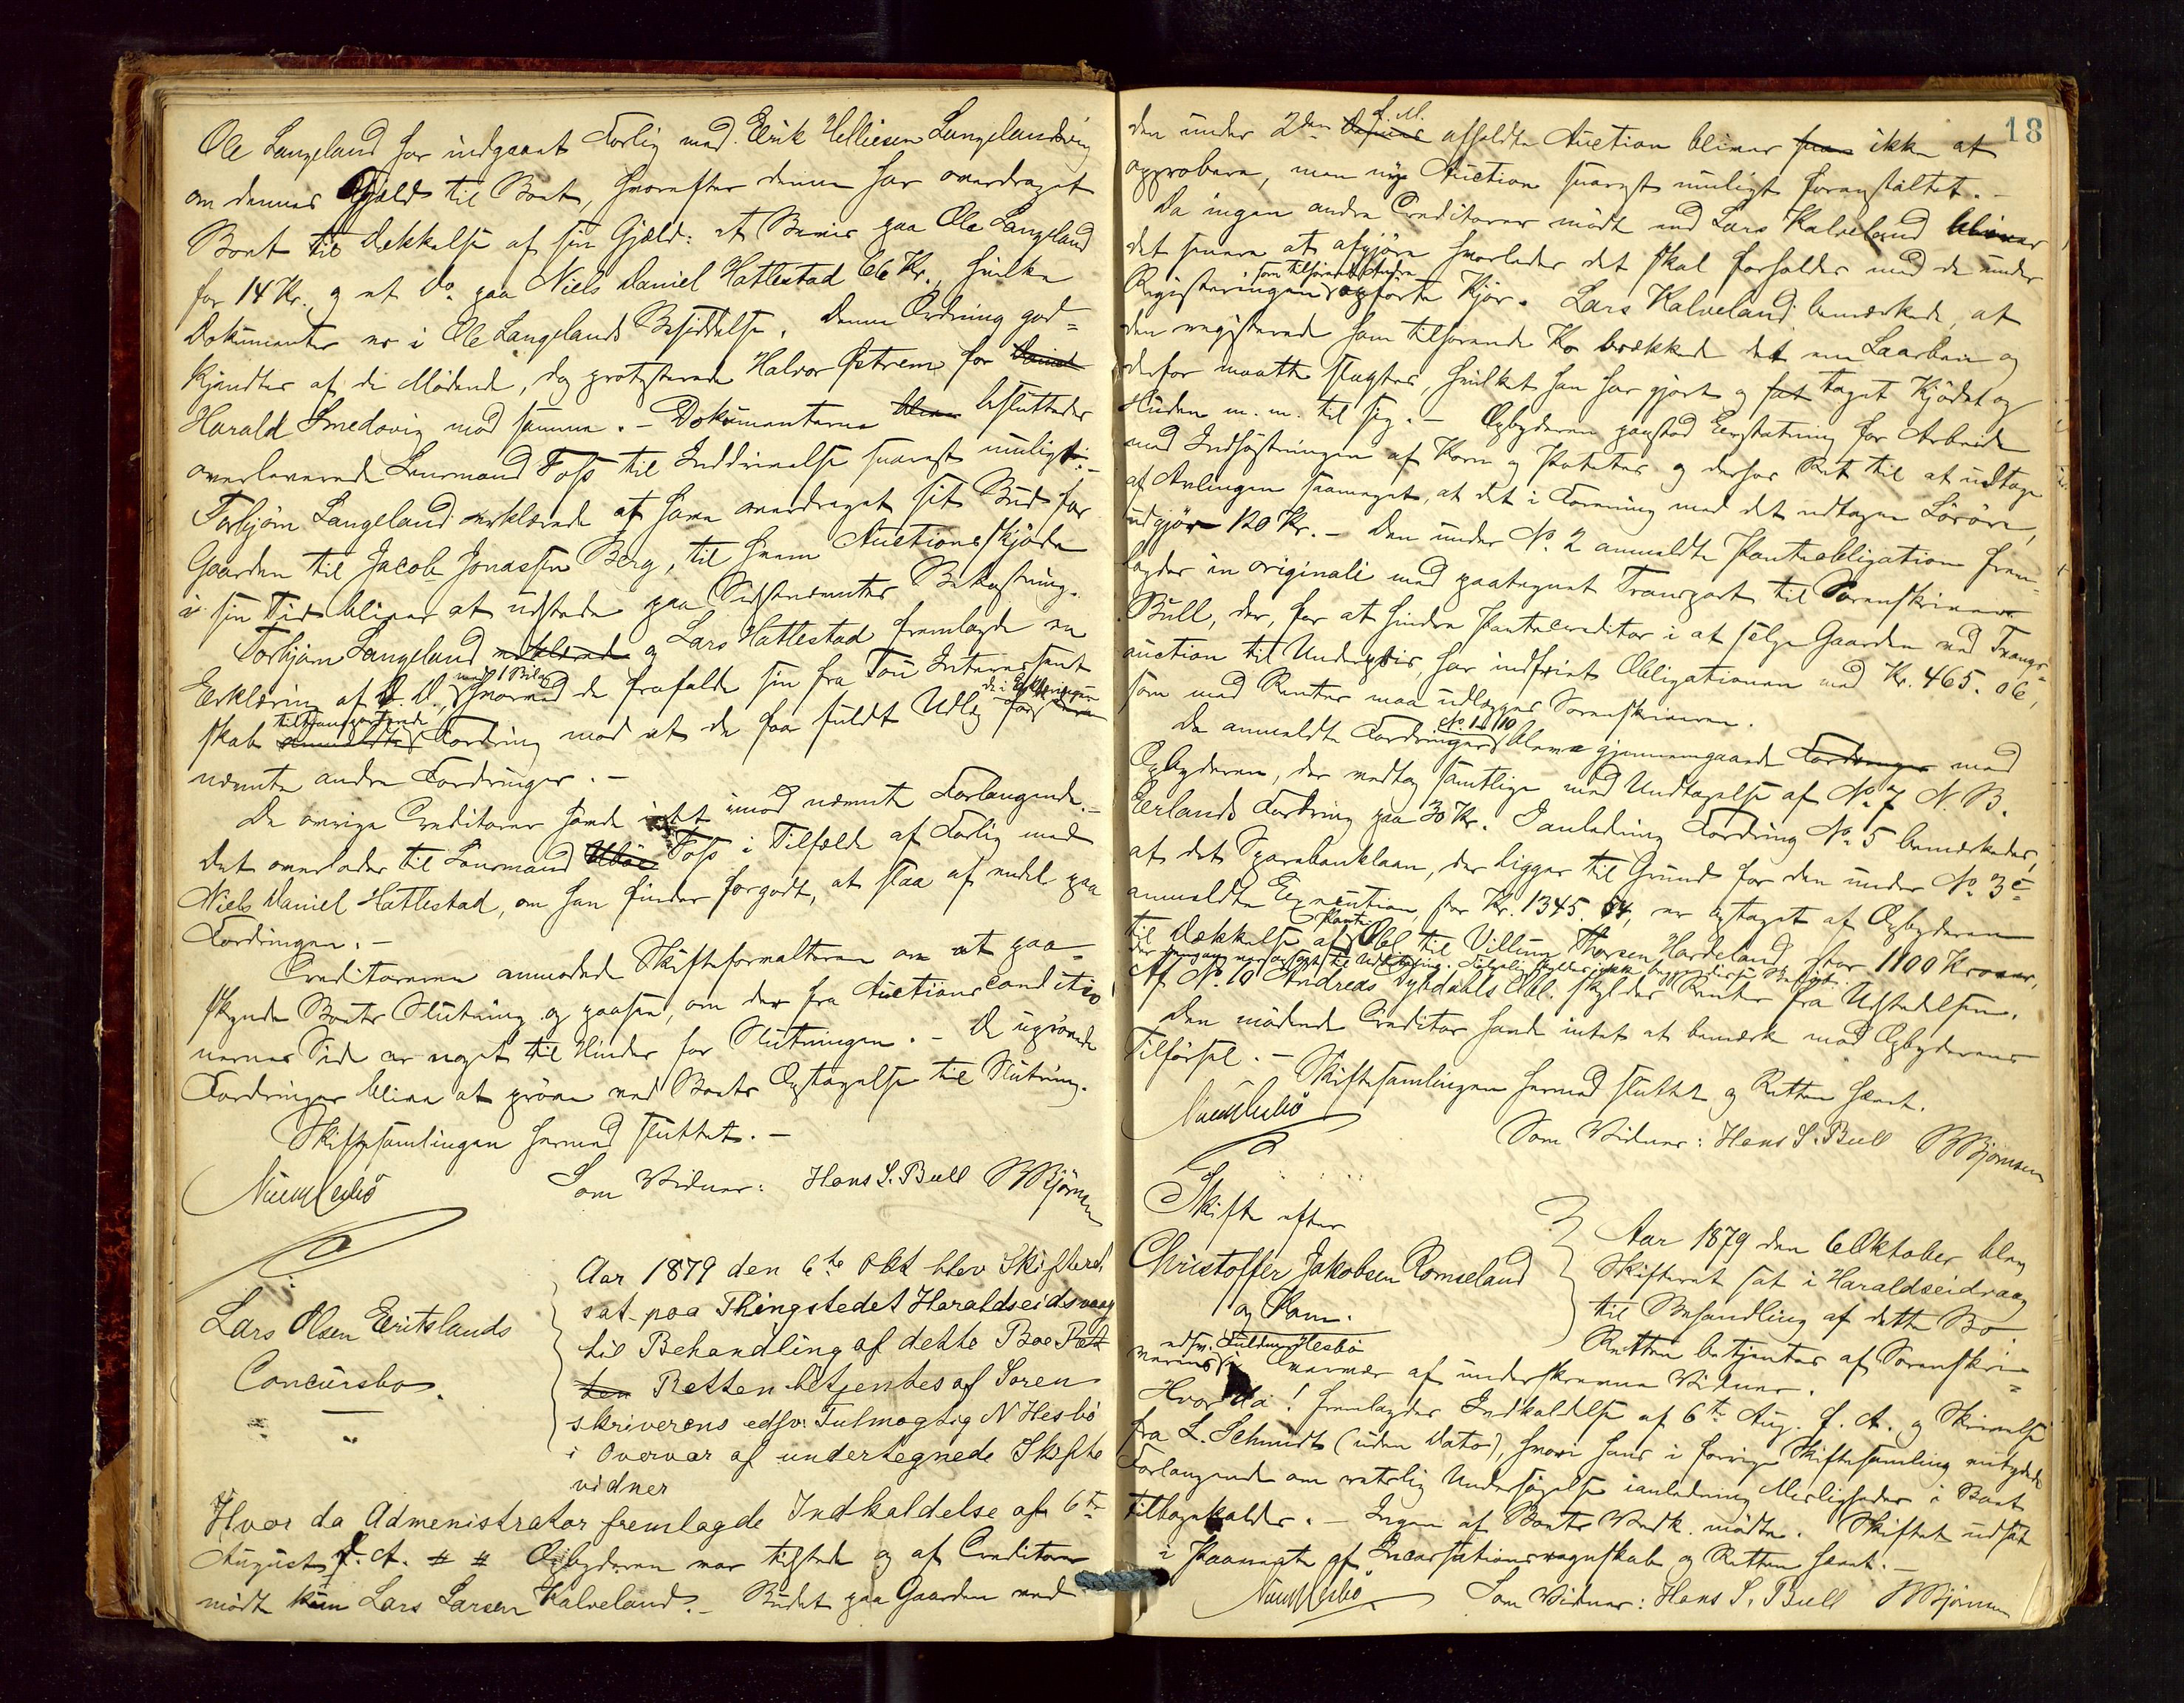 Ole Langeland har indgaaet Forlig med Erik Helliesen Langelandsvig
om dennes Gjæld til Boet, hvorefter denne har overdraget
Boet til Dækkelse af sin Gjæld: et Bevis paa Ole Langeland
for 14 Kr. og et do. paa Niels Daniel Hatlestad 66 Kr., hvilke
Dokumenter er i Ole Langelands Besiddelse. Denne Ordning god=
kjendtes af de Mødende, dog protesterede Halvor Østrem for
Harald Smedsvig mod samme. – Dokumenterne blev besluttedes
overleverede Lensmand Foss til Inddrivelse snarest muligt. –
Torbjørn Langeland erklærede at have overdraget sit Bud for
Gaarden til Jacob Jonassen Berg, til hvem Auctionsskjøde
i sin Tid bliver at udstede paa Sidstnævntes Bekostning.
Torbjørn Langeland erklærede og Lars Hatlestad fremlagde en
Erklæring af D. D., med 1 Bilag hvorved de frafalde sin fra Tou Interessent
skab tiltransporterede anmeldte Fordring mod at de faa fuldt Udlæg for de i Erklæringen
nævnte andre Fordringer. –
De øvrige Creditorer havde intet imod nævnte Forlangende. –
Det overlodes til Lensmand Foss i Tilfælde af Forlig med
Niels Daniel Hatlestad, om han finder forgodt, at slaa af endel paa
Fordringen. –
Creditorerne anmodede Skifteforvalteren om at paa=
skynde Boets Slutning og paase, om der fra Auctionsconditio
nernes Side er noget til Hinder for Slutningen. – De uprøvede
Fordringer blive at prøve ved Boets Optagelse til Slutning.
Skiftesamlingen hermed sluttet. –
Som Vidner: Hans S. Bull
Lars Olsen Eeritslands
Concursbo.
Aar 1879 den 6te Okt blev Skifteret
sat paa Thingstedet Haraldseidsvaag
til Behandling af dette Boe Ret
ten Retten betjentes af Soren
skriverens edsv: Fulmægtig N Hesbö
i Overvær af undertegnede Skifte
vidner
Hvor da Admenistrator fremlagde Indkaldelse af 6te
August d. A. # # Opbyderen var tilstede og af Creditorer
mødte kun Lars Larsen Kalveland. – Budet paa Gaarden ved
18
den under 2den d. M. afholdte Auction bliver ikke at
approbere, men ny Auction snarest muligt foranstaltet. –
Da ingen andre Creditorer mødte end Lars Kalveland bliver
det senere at afgjøre hvorledes det skal forholdes med de under
Registeringen som tilhørende Andre opførte Kjør. Lars Kalveland bemærkede, at
den registerede ham tilhørende Ko brækkede det ene Laarben og
derfor maatte slagtes, hvilket han har gjort og taget Kjødet og
Huden m. m. til sig. – Opbyderen paastod Erstatning for Arbeide
med Indhøstningen af Korn og Poteter og derfor Ret til at udtage
af Avlingen saameget, at det i Forening med det udtagne Løsøre,
udgjør 120 Kr. – Den under No. 2 anmeldte Panteobligation frem=
lagdes in originali med paategnet Transport til Sorenskriver
Bull, der, for at hindre Pantecreditor i at selge Gaarden ved Tvangs=
auction til Underpris, har indfriet Obligationen med Kr. 465. 06,
som med Renter maa udlægges Sorenskriveren.
De anmeldte Fordringer No. 1 – 10 bleve gjennemgaaede Fordringer med
Opbyderen, der vedtog samtlige med Undtagelse af No. 7 N. B.
Eerlands Fordring paa 30 Kr. I anledning Fordring No. 5 bemærkedes,
at det Sparebanklaan, der ligger til Grund for den under No. 3
anmeldte Execution, for Kr. 1345. 54, er optaget af Opbyderen
til Dækkelse af Pante Obl. til Villum Thorsen Hardeland, stor 1100 Kroner,
Af No. 10 Andreas Dybdahls Obl. skyldes Renter fra Udstedelsen.
Den mødende Creditor havde intet at bemærke mod Opbyderens
Tilførsel. – Skiftesamlingen hermed sluttet og Retten hævet.
Som Vidner: Hans S. Bull
Skifte efter
Christoffer Jakobsen Romseland
og Kone.
Aar 1879 den 6 Oktober blev
Skifteret sat i Haraldseidvaag
til Behandling af dette Bo
Retten betjentes af Sorenskri=
verens edsv. Fuldm. Hesbö i Overvær af underskrevne Vidner.
Hvor da! fremlagdes Indkaldelse af 6te Aug. d. A. og Skrivelse
fra L. Schmidt (uden Dato), hvori hans i forrige Skiftesamling
Forlangende om retslig Undersøgelse ianledning Misligheder i Boet
tilbagekaldes. – Ingen af Boets Vedk. mødte. Skiftet udsat
i Paavente af Incassationsregnskab og Retten hævet. –
Som Vidner: Hans S. Bull